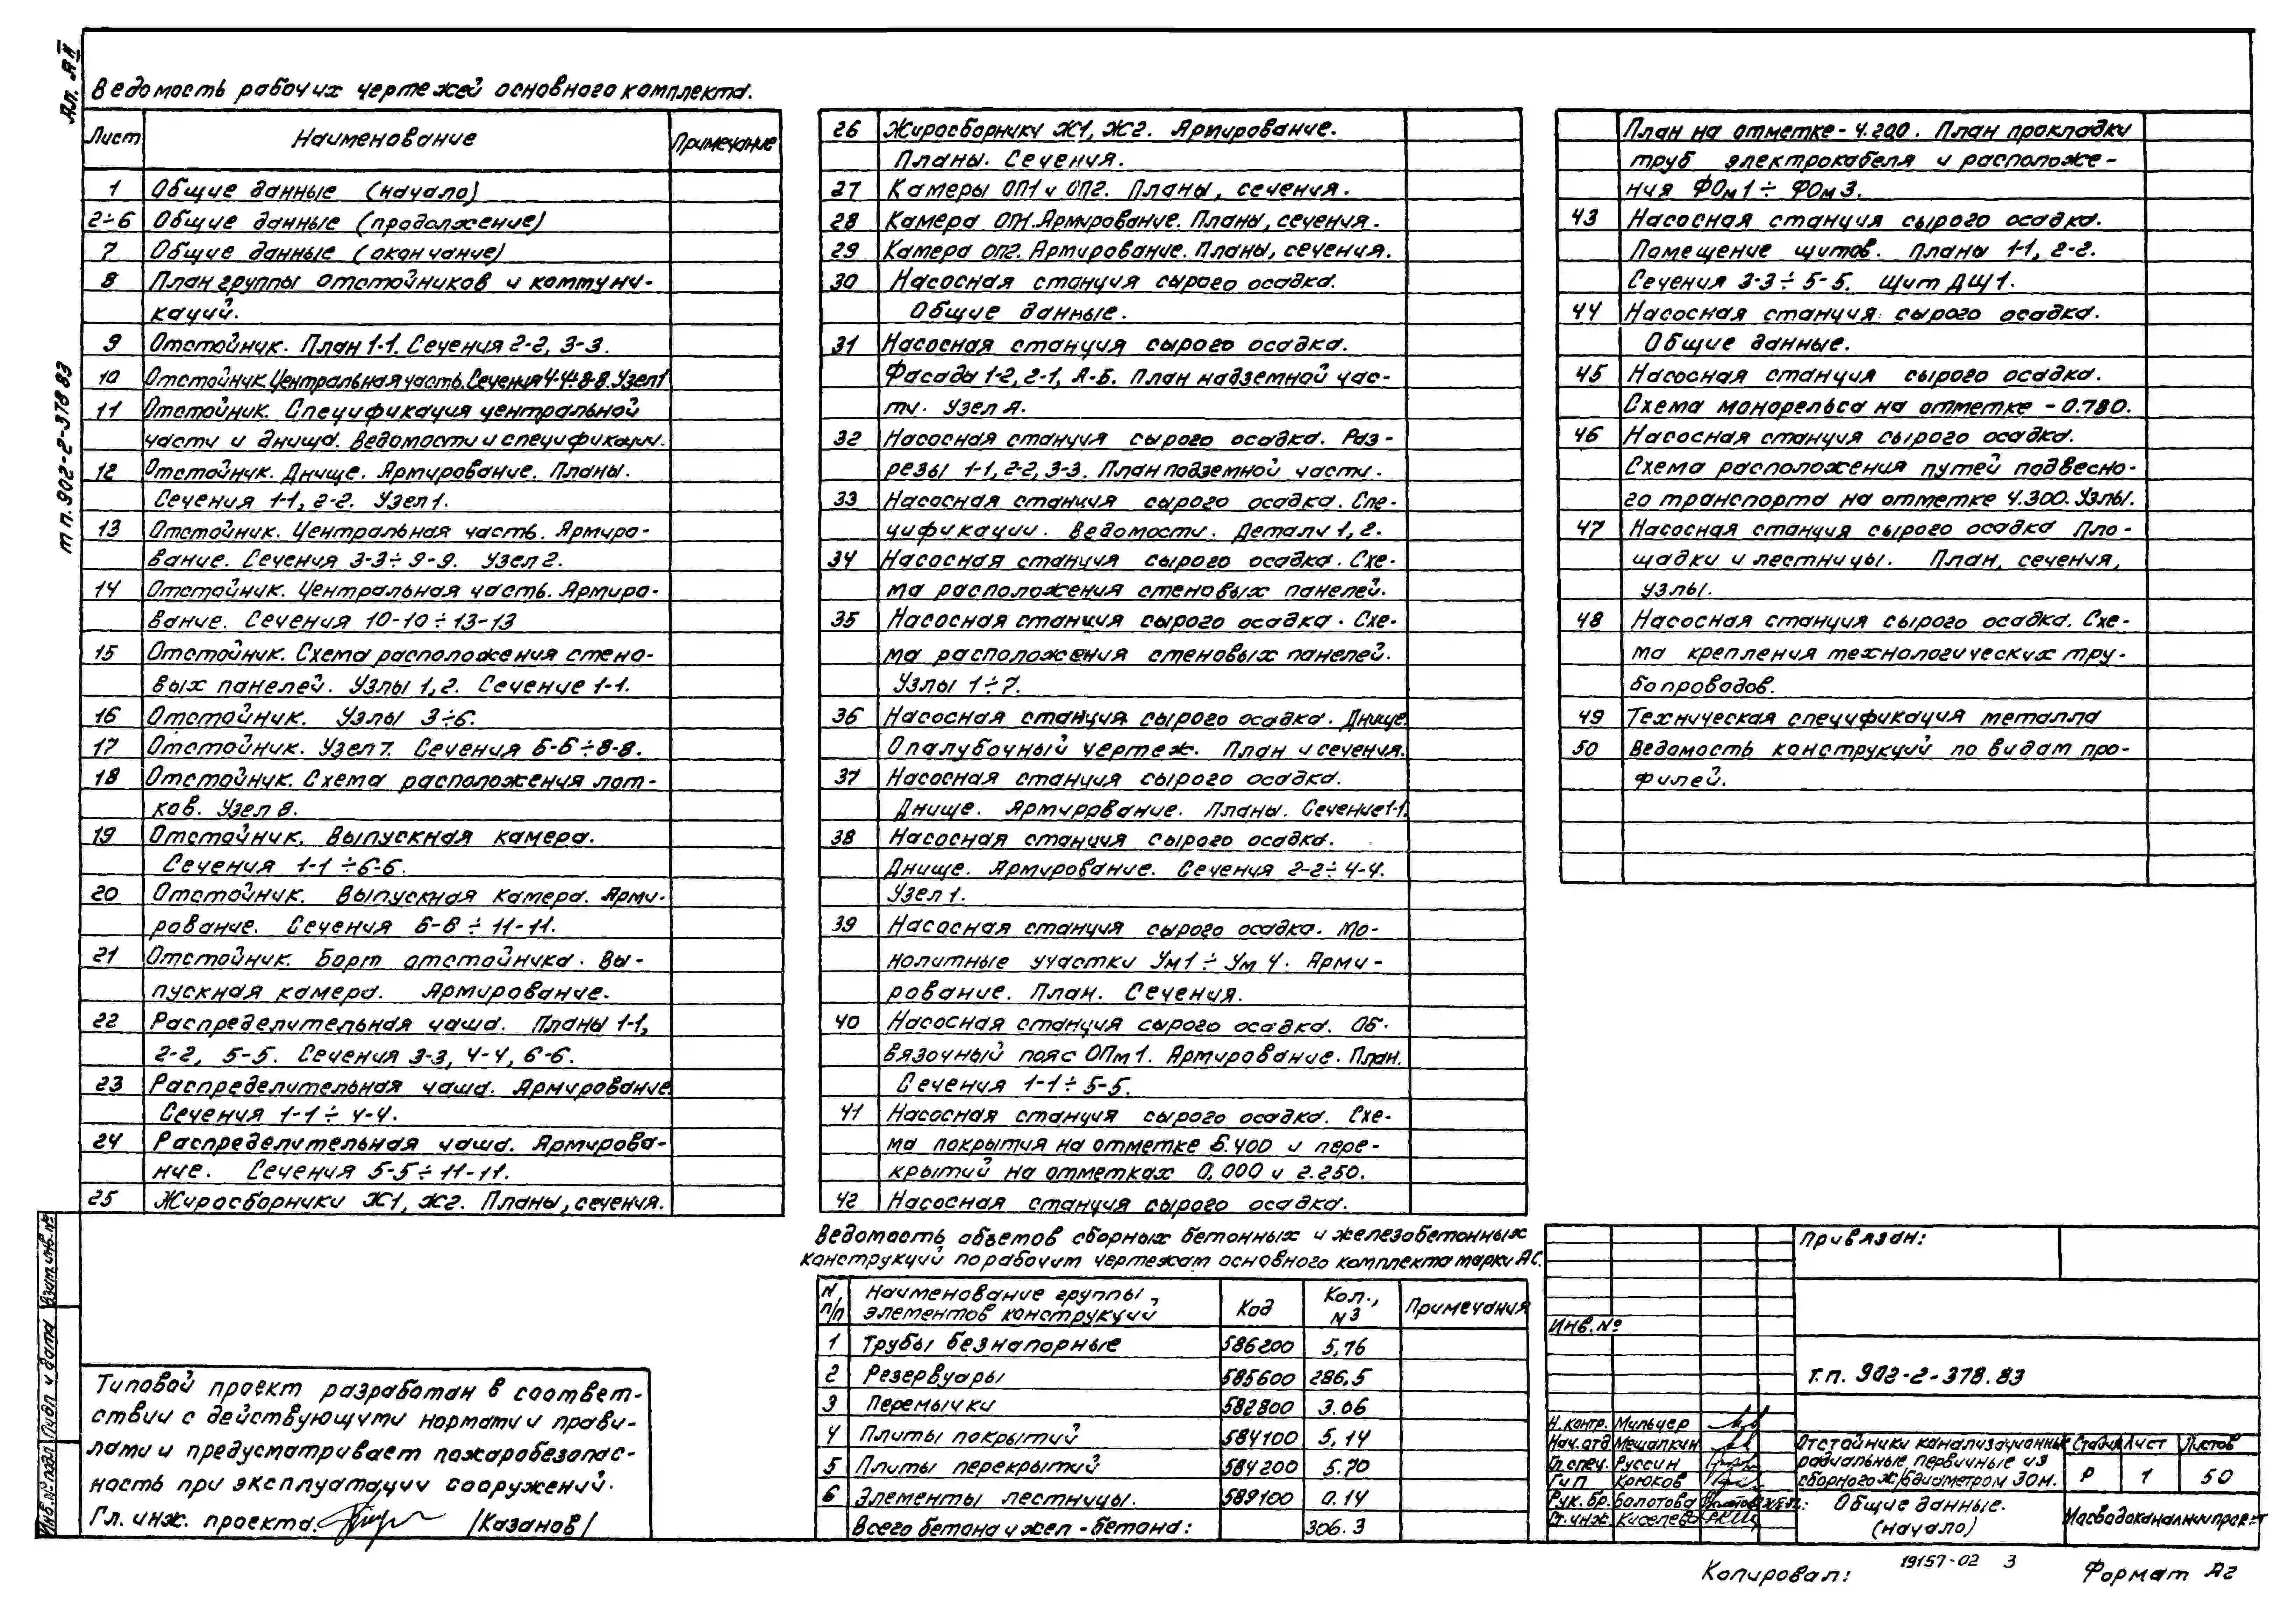 Ал. II
т п. 902-2-378 83
Ведомость рабочих чертежей основного комплекта.
Лист Наименование Примечание
1 Общие данные (начало)
2÷6 Общие данные (продолжение)
7 Общие данные (окончание)
8 План группы отстойников и коммуни-
каций.
9 Отстойник. План 1-1. Сечения 2-2, 3-3.
10 Отстойник. Центральная часть. Сечения 4-4÷8-8. Узел 1
11 Отстойник. Спецификация центральной
части и днища. Ведомости и спецификации.
12 Отстойник. Днище. Армирование. Планы.
Сечения 1-1, 2-2. Узел 1.
13 Отстойник. Центральная часть. Армиро-
вание. Сечения 3-3÷9-9. Узел 2.
14 Отстойник. Центральная часть. Армиро-
вание. Сечения 10-10÷13-13
15 Отстойник. Схема расположения стено-
вых панелей. Узлы 1, 2. Сечение 1-1.
16 Отстойник. Узлы 3÷6.
17 Отстойник. Узел 7. Сечения 6-6÷8-8.
18 Отстойник. Схема расположения лот-
ков. Узел 8.
19 Отстойник. Выпускная камера.
Сечения 1-1÷6-6.
20 Отстойник. Выпускная камера. Арми-
рование. Сечения 6-6÷11-11.
21 Отстойник. Борт отстойника. Вы-
пускная камера. Армирование.
22 Распределительная чаша. Планы 1-1,
2-2, 5-5. Сечения 3-3, 4-4, 6-6.
23 Распределительная чаша. Армирование.
Сечения 1-1÷4-4.
24 Распределительная чаша. Армирова-
ние. Сечения 5-5÷11-11.
25 Жиросборники Ж1, Ж2. Планы, сечения.
26 Жиросборники Ж1, Ж2. Армирование.
Планы. Сечения.
27 Камеры ОП1 и ОП2. Планы, сечения.
28 Камера ОП1. Армирование. Планы, сечения.
29 Камера ОП2. Армирование. Планы, сечения.
30 Насосная станция сырого осадка.
Общие данные.
31 Насосная станция сырого осадка.
Фасады 1-2, 2-1, А-Б. План надземной час-
ти. Узел А.
32 Насосная станция сырого осадка. Раз-
резы 1-1, 2-2, 3-3. План подземной части.
33 Насосная станция сырого осадка. Спе-
цификации. Ведомости. Детали 1, 2.
34 Насосная станция сырого осадка. Схе-
ма расположения стеновых панелей.
35 Насосная станция сырого осадка. Схе-
ма расположения стеновых панелей.
Узлы 1÷7.
36 Насосная станция сырого осадка. Днище.
Опалубочный чертеж. План и сечения.
37 Насосная станция сырого осадка.
Днище. Армирование. Планы. Сечение 1-1.
38 Насосная станция сырого осадка.
Днище. Армирование. Сечения 2-2÷4-4.
Узел 1.
39 Насосная станция сырого осадка. Мо-
нолитные участки Ум1÷Ум 4. Арми-
рование. План. Сечения.
40 Насосная станция сырого осадка. Об-
вязочный пояс ОПм1. Армирование. План.
Сечения 1-1÷5-5.
41 Насосная станция сырого осадка. Схе-
ма покрытия на отметке 6.400 и пере-
крытий на отметках 0,000 и 2.250.
42 Насосная станция сырого осадка.
План на отметке -4.200. План прокладки
труб электрокабеля и расположе-
ния ФОм1÷ФОм3.
43 Насосная станция сырого осадка.
Помещение щитов. Планы 1-1, 2-2.
Сечения 3-3÷5-5. Щит ДЩ1.
44 Насосная станция сырого осадка.
Общие данные.
45 Насосная станция сырого осадка.
Схема монорельса на отметке -0.780.
46 Насосная станция сырого осадка.
Схема расположения путей подвесно-
го транспорта на отметке 4.300. Узлы.
47 Насосная станция сырого осадка Пло-
щадки и лестницы. План, сечения,
узлы.
48 Насосная станция сырого осадка. Схе-
ма крепления технологических тру-
бопроводов.
49 Техническая спецификация металла
50 Ведомость конструкций по видам про-
филей.
Ведомость объемов сборных бетонных и железобетонных
конструкций по рабочим чертежам основного комплекта марки АС.
N п/п Наименование группы элементов конструкций Код Кол., м3 Примечания
1 Трубы безнапорные 586200 5,76
2 Резервуары 585600 286.5
3 Перемычки 582800 3.06
4 Плиты покрытий 584100 5,14
5 Плиты перекрытий 584200 5.70
6 Элементы лестницы. 589100 0.14
Всего бетона и жел-бетона: 306.3
Типовой проект разработан в соответ-
ствии с действующими нормами и прави-
лами и предусматривает пожаробезопас-
ность при эксплуатации сооружений.
Гл. инж. проекта: /Казанов/
Взам. инв. №
Подп. и дата
Инв. № подл.
Привязан:
Инв. №
Т.п. 902-2-378.83
Н. контр. Мильчер
Нач. отд Мешалкин
Гл. спец. Руссин
ГиП Крюков
Рук. бр. Болотова
Ст. инж. Киселева
Отстойники канализационные
радиальные первичные из
сборного ж/б диаметром 30м.
Стадия Лист Листов
Р 1 50
Общие данные.
(начало)
Мосводоканалниипроект
Копировал: 19157-02 3 Формат А2